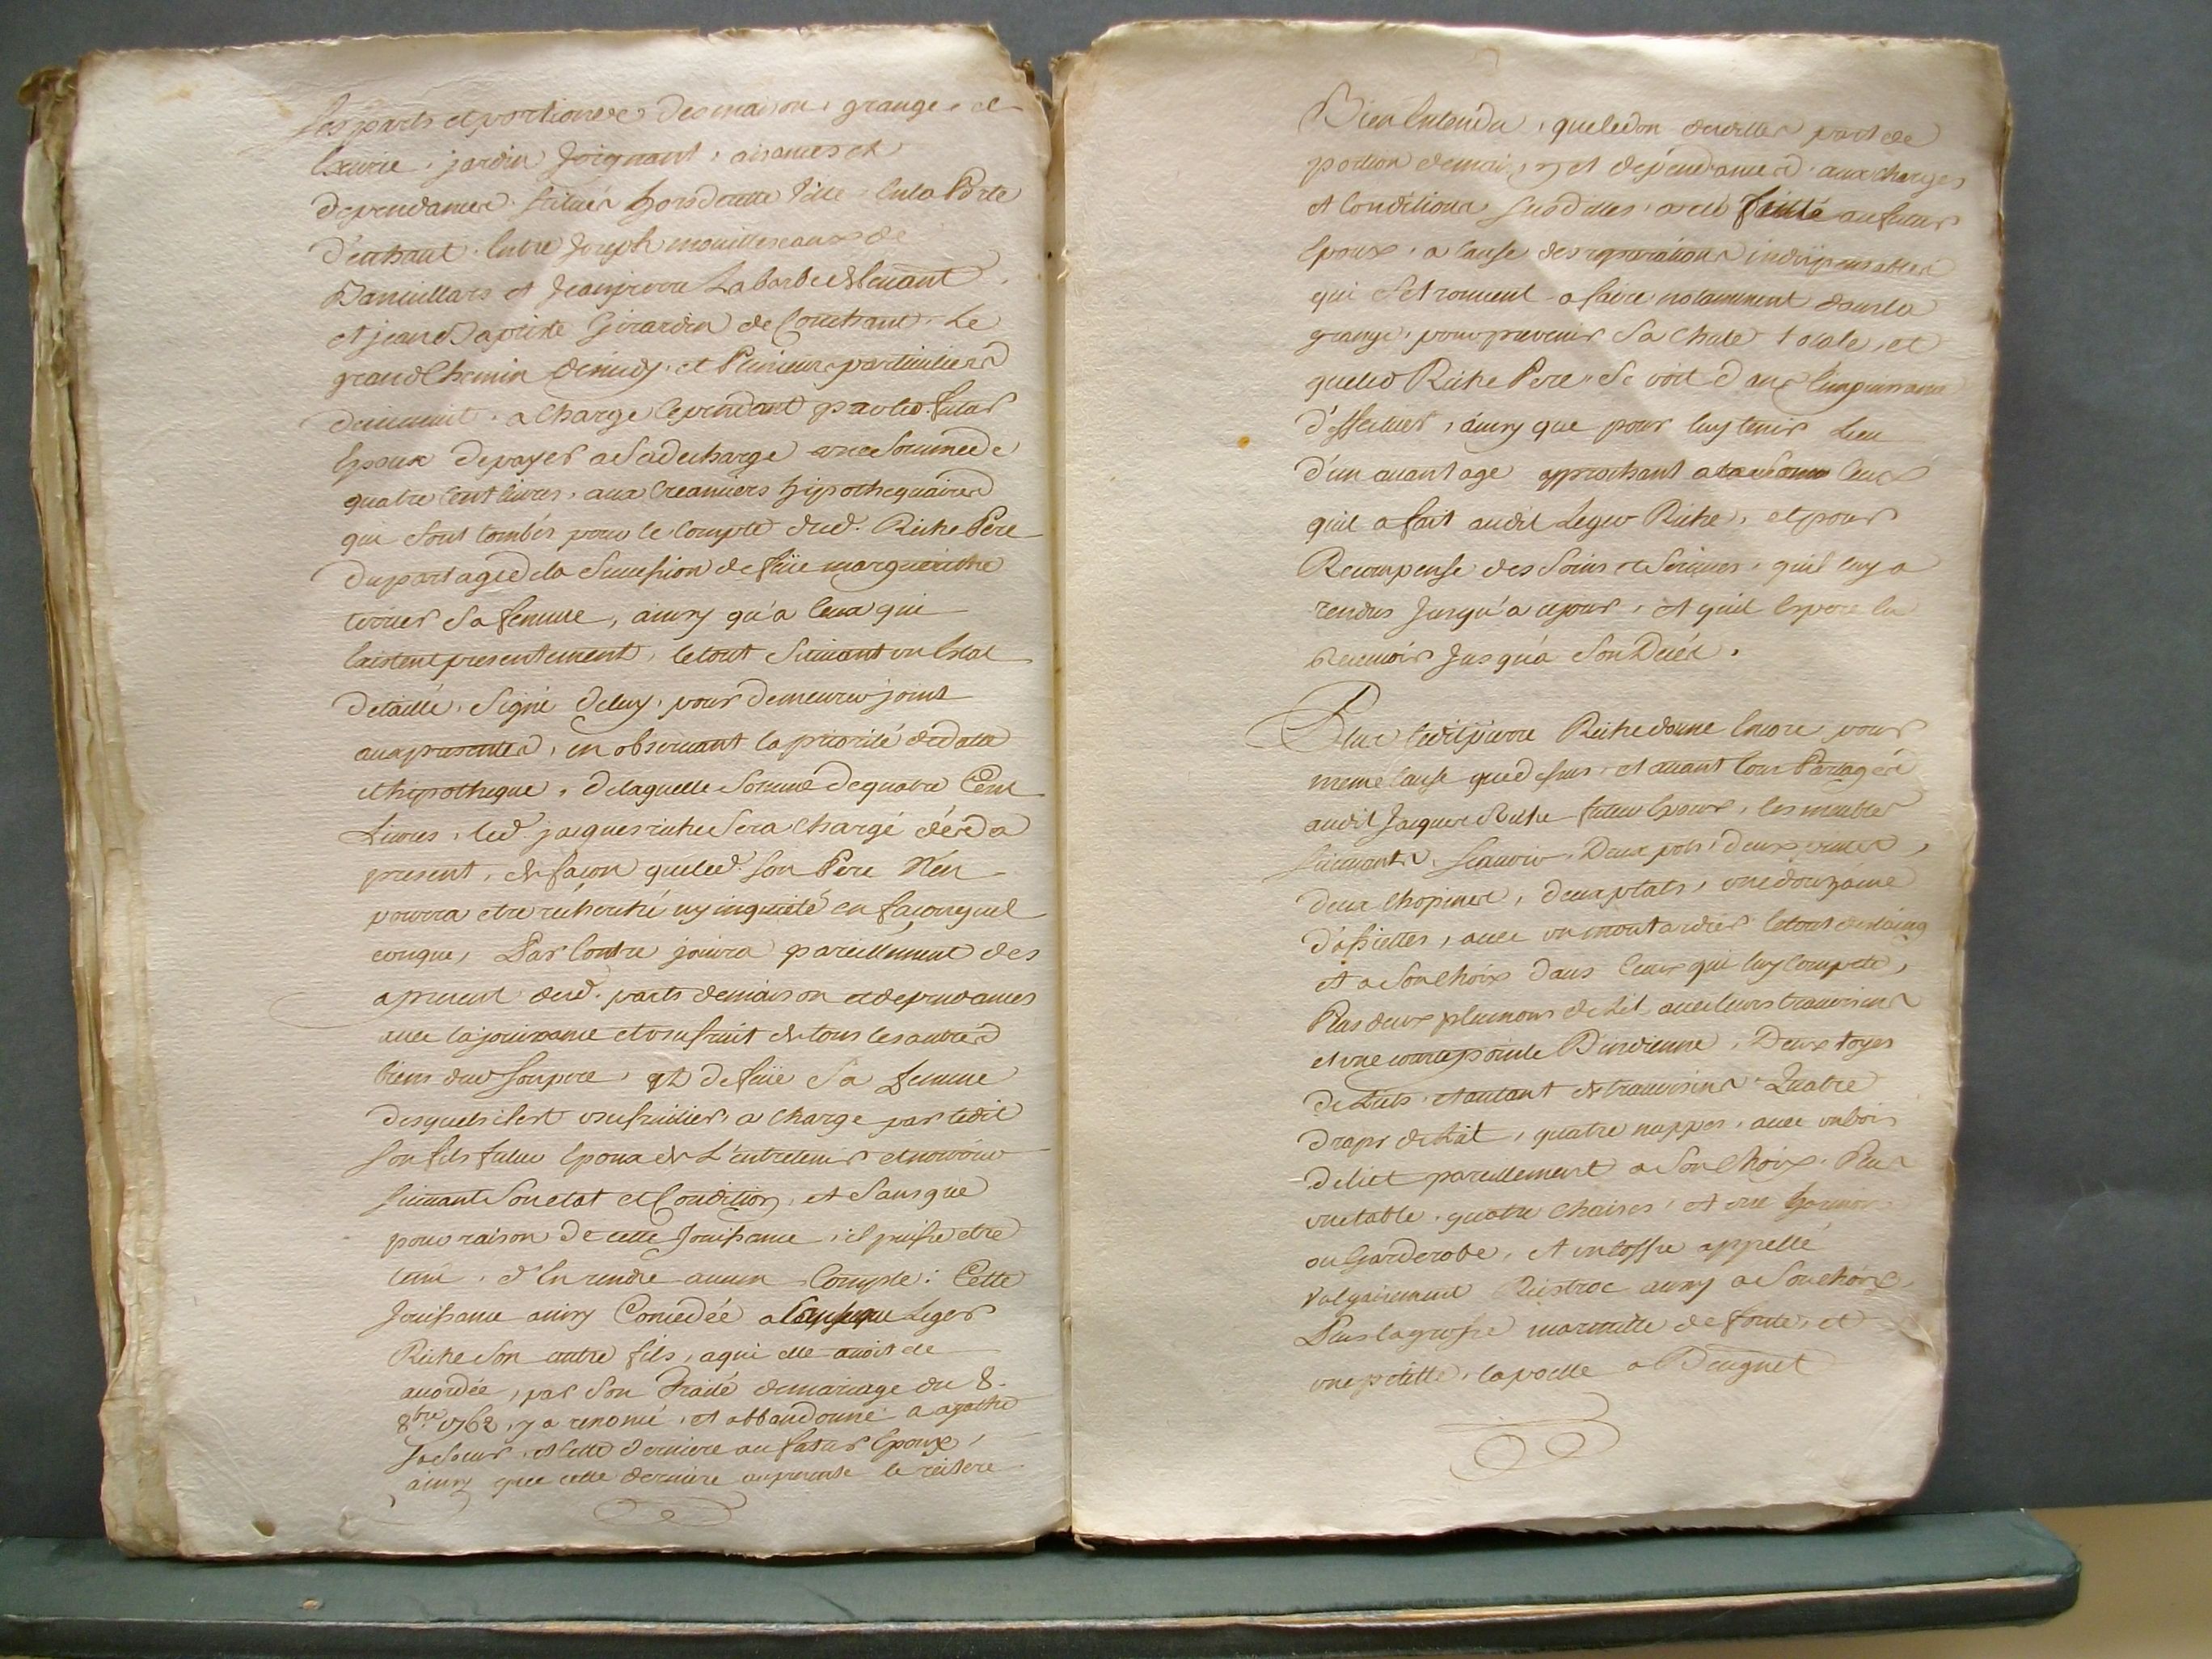 ses parts et portions es des maison, grange, et
Ecurie, jardin Joignant, aisances et
dependances, situés hors de cette Ville, en la Porte
d'enhaut, Entre Joseph mouilleseaux de
Danvillars et Jeanpierre Labarbe de levant
et jean Baptiste Girardin de Couchant, Le
grand Chemin de midy, et Plusieurs particuliers
de minuit, a Charge Cependant par led. futur
Epoux de payer a Sa decharge une Somme de
quatre Cent livres, aux Creanciers hipothequaires
qui Sont tombés pour le Compte dud. Riche Pere
du partage de la Succession de feüe margueritte
sa femme, ainsy qu'a Ceux qui
Existent presentement, le tout Suivant un Etat
detaillé, Signé de luy, pour demeurer joint
aux presentes, en observant la priorité de datte
et hipotheque, de laquelle Somme de quatre Cent
Livres, led. jacques riche Sera Chargé dés a
present, de façon que led. Son Pere N'en
pourra etre recherché ny inquiété en façon quel
conque, Par Contre jouira pareillement des
apresent desd. parts de maison et dependances
avec la jouissance et usufruit de tous les autres
biens dud. Son pere, et de feüe Sa femme
desquels il est usufruitier, a Charge par ledit
Son fils futur Epoux de L'entretenir et nourir
suivant Son etat et Condition, et Sans que
pour raison de cette Jouissance, il puisse etre
tenu, d'En rendre aucun Compte: Cette
Jouissance ainsy Concedée a Leger
Riche Son autre fils, a qui elle avoit eté
accordée, par Son Traité de mariage du 8.
8bre 1762, y a renoncé, et abbandonné a agathe
Sa Soeur, et Cette derniere au futur Epoux,
ainsy que cette derniere au presente le reitere
Bien Entendu, que le don desdittes part de
portion de maison et dependances aux charges
et Conditions Susdittes, a eté faitte au futur
Epoux, a Cause des reparations indispensables
qui Se trouvent a faire notamment dans la
grange, pour prevenir Sa Chute totale, et
que led Riche Pere, Se voit dans l'impuissance
d'effectuer, ainsy que pour luy tenir Lieu
d'un avantage approchant a Ceux
qu'il a fait audit Leger Riche, et pour
Recompense des Soins et Services, quil luy a
rendus Jusqu'a ce jour, et quil Espere En
Recevoir Jusqu'a Son Decés.
Plus ledit pierre Riche donne Encore pour
meme Cause que dessus, et avant tous Partages
audit Jacques Riche futur Epoux, les meubles
suivants, Scavoir, Deux pots, deux
deux Chopines, deux plats, une douzaine
d'assiettes, avec un moutardier le tout d'estaing
et a Son Choix dans Ceux qui luy Compete,
Plus deux plumons de Lit avec leurs traversins
et une courtepointe D'indienne, Deux toyes
de Lits, et autant de traversins Quatre
draps de Lit, quatre nappes, avec un bois
de lict pareillement a Son Choix, Plus
une table, quatre Chaises, et une
ou Garderobe, et un Coffre appellé
Vulgairement Ristroc ainsy a Son Choix,
Plus la grosse marmitte de fonte, et
une petitte, la poelle a Beugnet